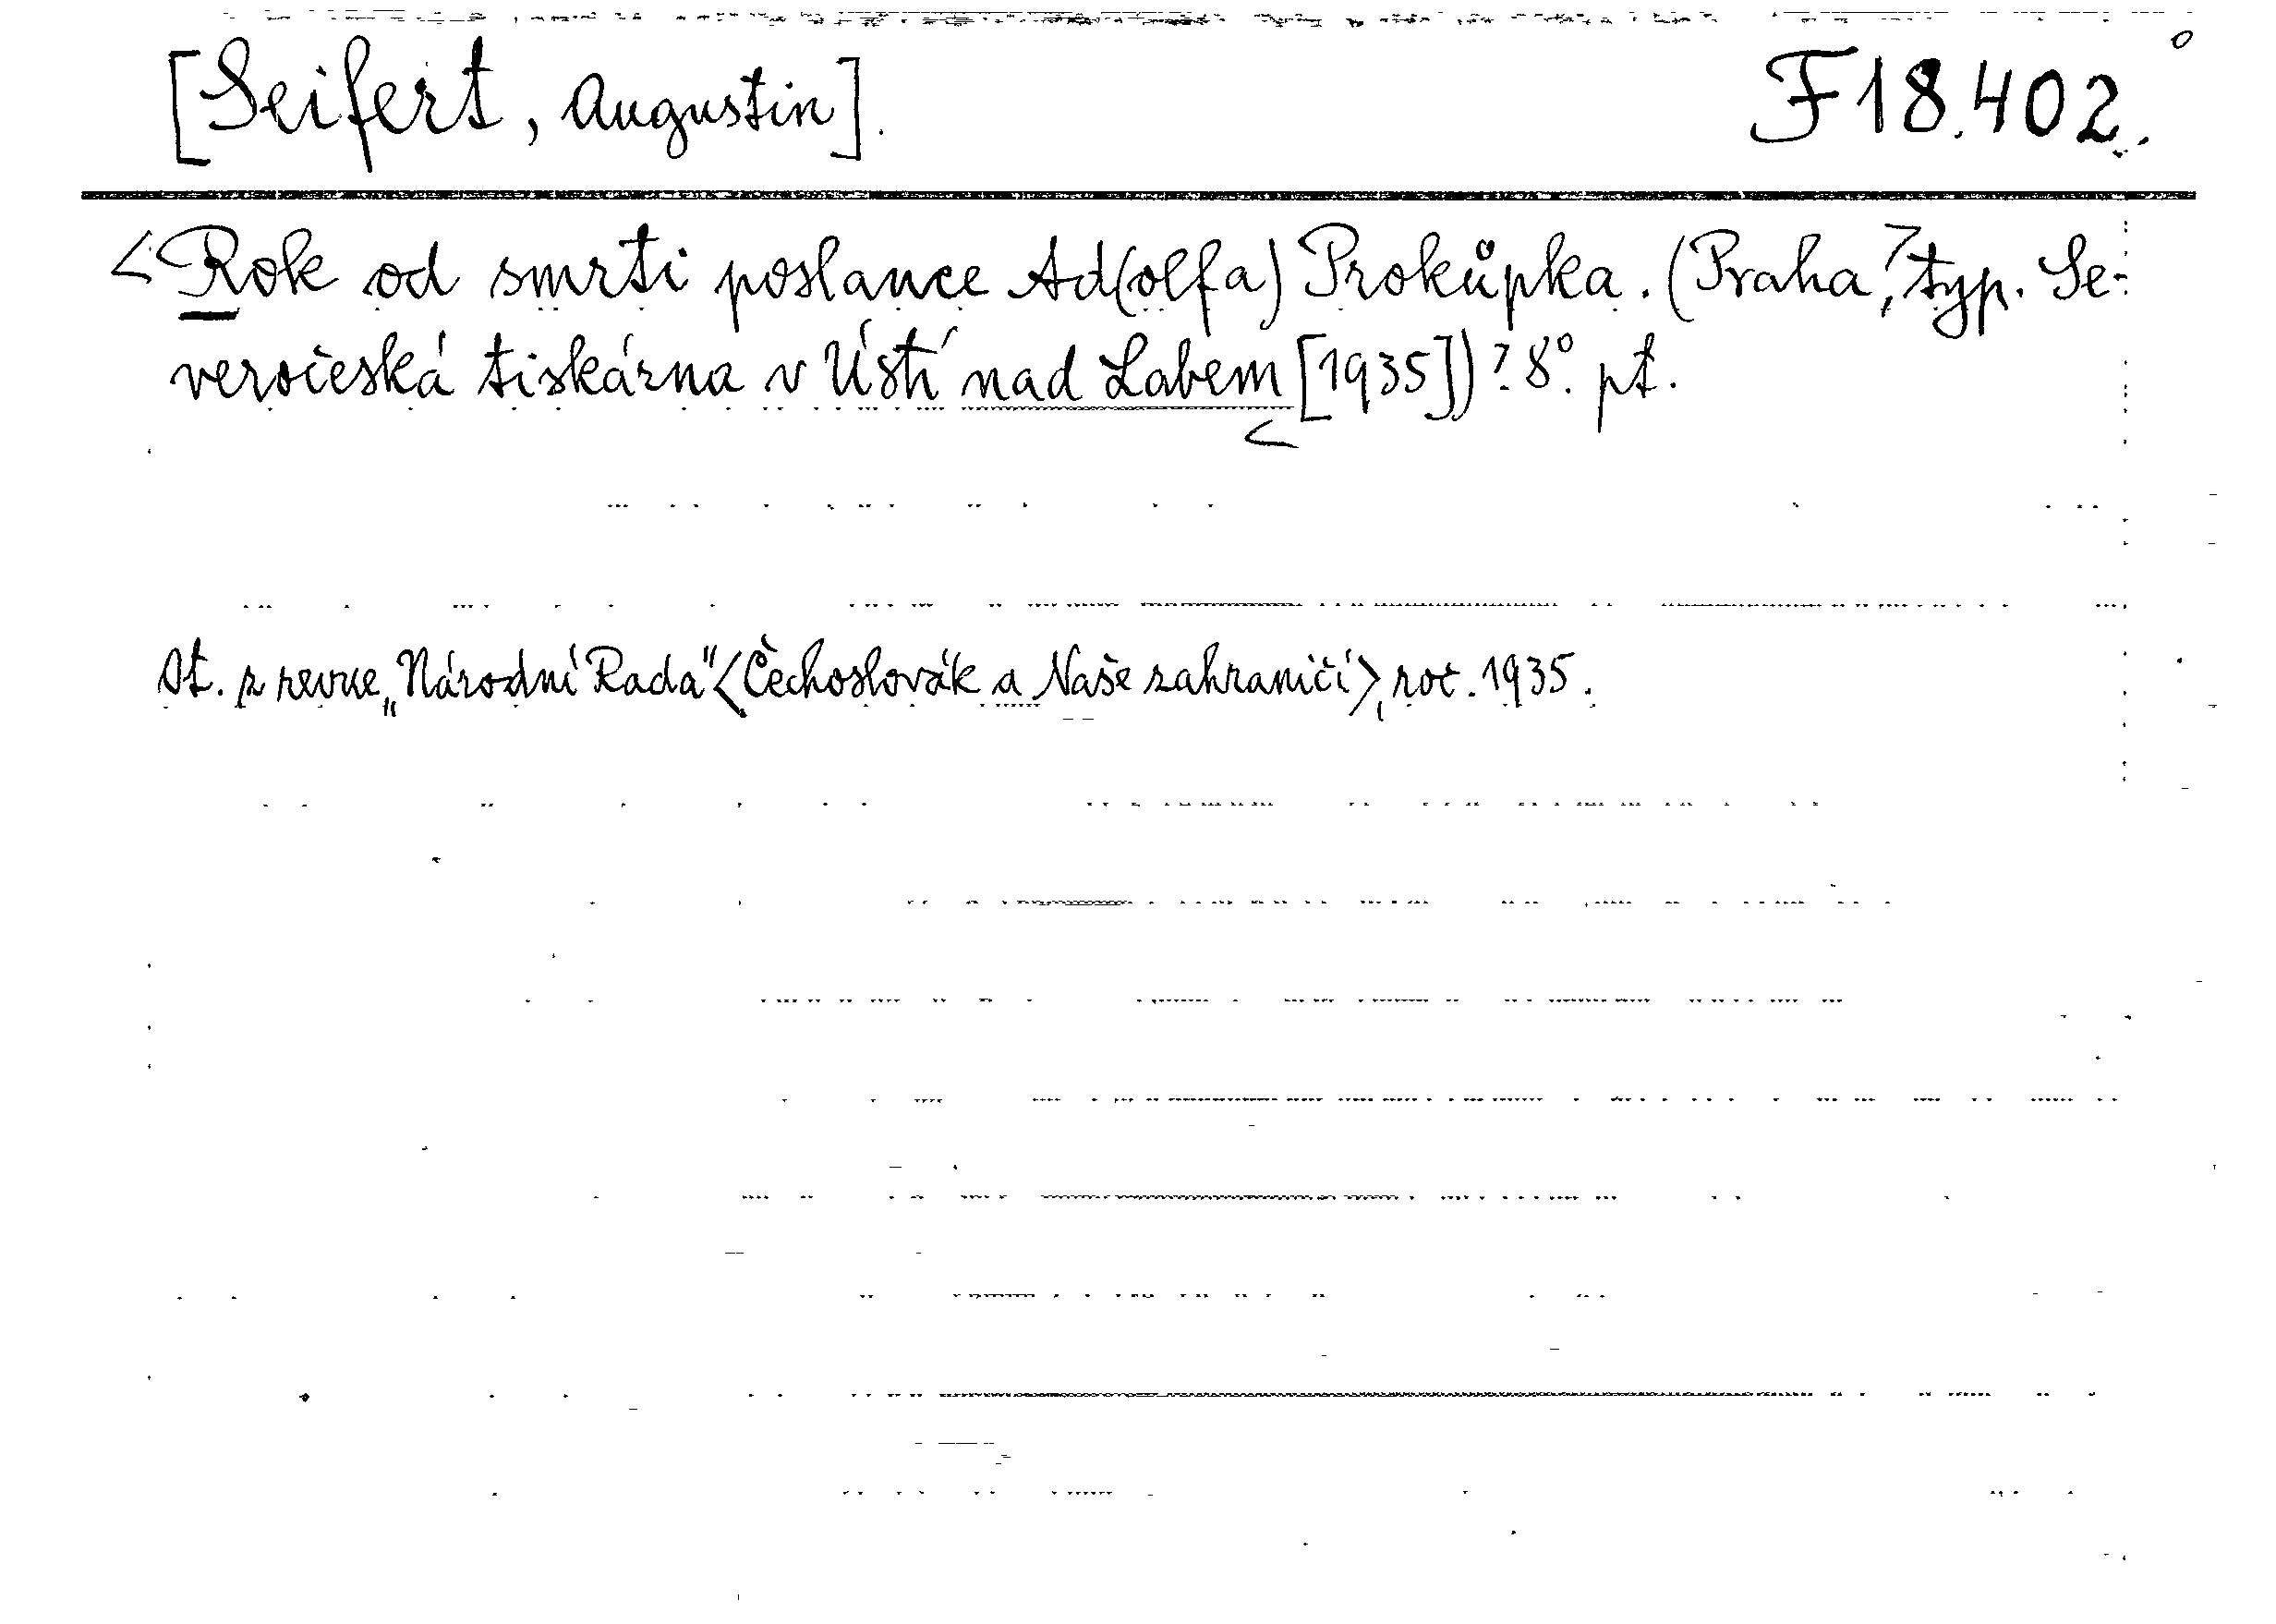 [Seifert, Augustin]. F 18.402.
<Rok od smrti poslance Ad(olfa) Prokůpka. (Praha,? typ. Se-
veročeská tiskárna v Ústí nad Labem [1935])? 8°. pt.
Ot. z revue „Národní Rada" <Čechoslovák a Naše zahraničí>, roč. 1935.